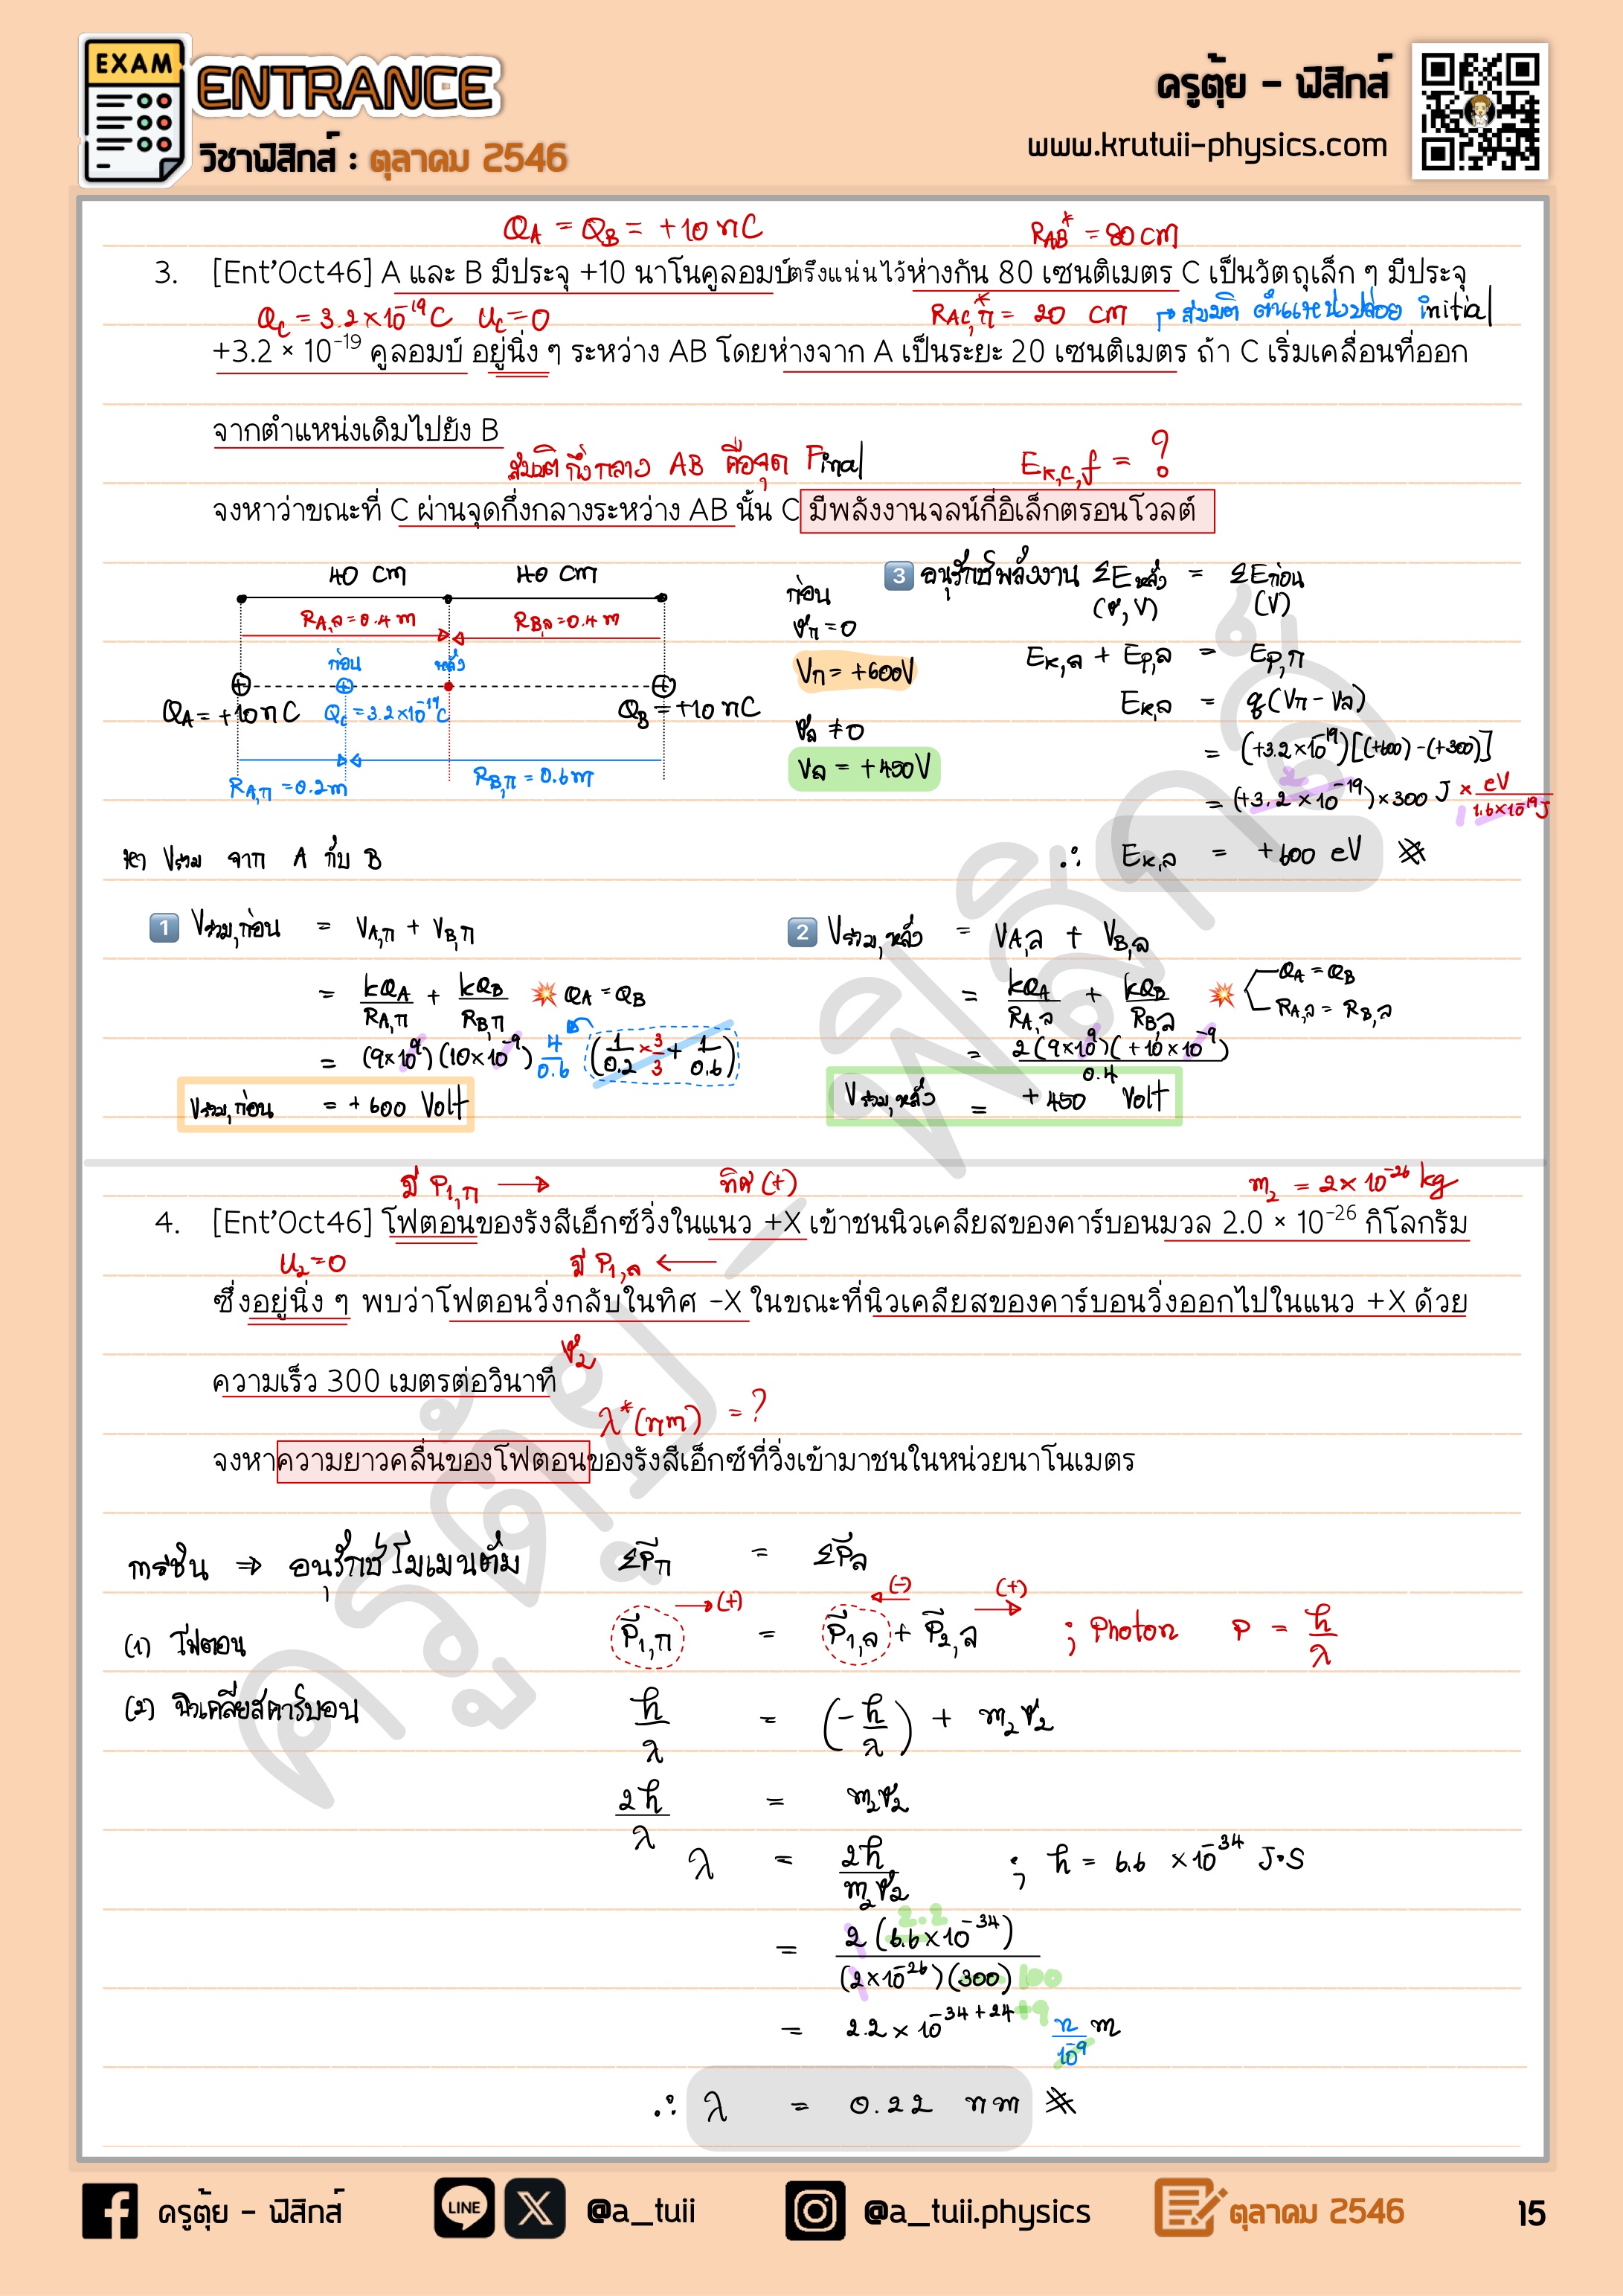 EXAM
ENTRANCE
วิชาฟิสิกส์ : ตุลาคม 2546
ครูตุ้ย - ฟิสิกส์
www.krutuii-physics.com
Q_A = Q_B = +10 nC
R_AB* = 80 cm
3. [Ent'Oct46] A และ B มีประจุ +10 นาโนคูลอมบ์ตรึงแน่นไว้ห่างกัน 80 เซนติเมตร C เป็นวัตถุเล็ก ๆ มีประจุ
Q_C = 3.2×10^-19 C u_C = 0
R_AC,ก* = 20 cm → สมมติ ตำแหน่งปล่อย initial
+3.2 × 10^-19 คูลอมบ์ อยู่นิ่ง ๆ ระหว่าง AB โดยห่างจาก A เป็นระยะ 20 เซนติเมตร ถ้า C เริ่มเคลื่อนที่ออก
จากตำแหน่งเดิมไปยัง B
สมมติกึ่งกลาง AB คือจุด Final
E_K,C,f = ?
จงหาว่าขณะที่ C ผ่านจุดกึ่งกลางระหว่าง AB นั้น C มีพลังงานจลน์กี่อิเล็กตรอนโวลต์
40 cm 40 cm
R_A,ล = 0.4 m R_B,ล = 0.4 m
ก่อน หลัง
Q_A = +10 nC Q_C = 3.2×10^-19 C Q_B = +10 nC
R_A,ก = 0.2 m R_B,ก = 0.6 m
ก่อน
v_ก = 0
V_ก = +600V
v_ล ≠ 0
V_ล = +450V
3 อนุรักษ์พลังงาน ΣE หลัง = ΣE ก่อน
(v, V) (V)
E_K,ล + E_P,ล = E_P,ก
E_K,ล = q(V_ก - V_ล)
= (+3.2×10^-19)[(+600)-(+300)]
= (+3.2×10^-19)×300 J × eV/1.6×10^-19 J
2 1
∴ E_K,ล = +600 eV
หา V รวม จาก A กับ B
1 V รวม,ก่อน = V_A,ก + V_B,ก
= kQ_A/R_A,ก + kQ_B/R_B,ก 💥 Q_A = Q_B
= (9×10^9)(10×10^-9) 4/0.6 (1/0.2 × 3/3 + 1/0.6)
V รวม,ก่อน = +600 Volt
2 V รวม,หลัง = V_A,ล + V_B,ล
= kQ_A/R_A,ล + kQ_B/R_B,ล 💥 Q_A = Q_B
R_A,ล = R_B,ล
= 2(9×10^9)(+10×10^-9)/0.4
V รวม,หลัง = +450 Volt
มี P_1,ก → ทิศ (+)
m_2 = 2×10^-26 kg
4. [Ent'Oct46] โฟตอนของรังสีเอ็กซ์วิ่งในแนว +X เข้าชนนิวเคลียสของคาร์บอนมวล 2.0 × 10^-26 กิโลกรัม
u_2 = 0 มี P_1,ล ←
ซึ่งอยู่นิ่ง ๆ พบว่าโฟตอนวิ่งกลับในทิศ -X ในขณะที่นิวเคลียสของคาร์บอนวิ่งออกไปในแนว +X ด้วย
v_2
ความเร็ว 300 เมตรต่อวินาที
λ*(nm) = ?
จงหาความยาวคลื่นของโฟตอนของรังสีเอ็กซ์ที่วิ่งเข้ามาชนในหน่วยนาโนเมตร
การชน ⇒ อนุรักษ์โมเมนตัม ΣP_ก = ΣP_ล
→(+) ←(-) (+)→
(1) โฟตอน P_1,ก = P_1,ล + P_2,ล ; Photon P = h/λ
(2) นิวเคลียสคาร์บอน h/λ = (-h/λ) + m_2 v_2
2h/λ = m_2 v_2
λ = 2h/m_2 v_2 ; h = 6.6 ×10^-34 J·S
2.2
= 2(6.6×10^-34)/(2×10^-26)(300) 100
= 2.2×10^-34+24+9 n/10^-9 m
∴ λ = 0.22 nm
ครูตุ้ย - ฟิสิกส์
ครูตุ้ย - ฟิสิกส์
LINE
@a_tuii
@a_tuii.physics
ตุลาคม 2546
15